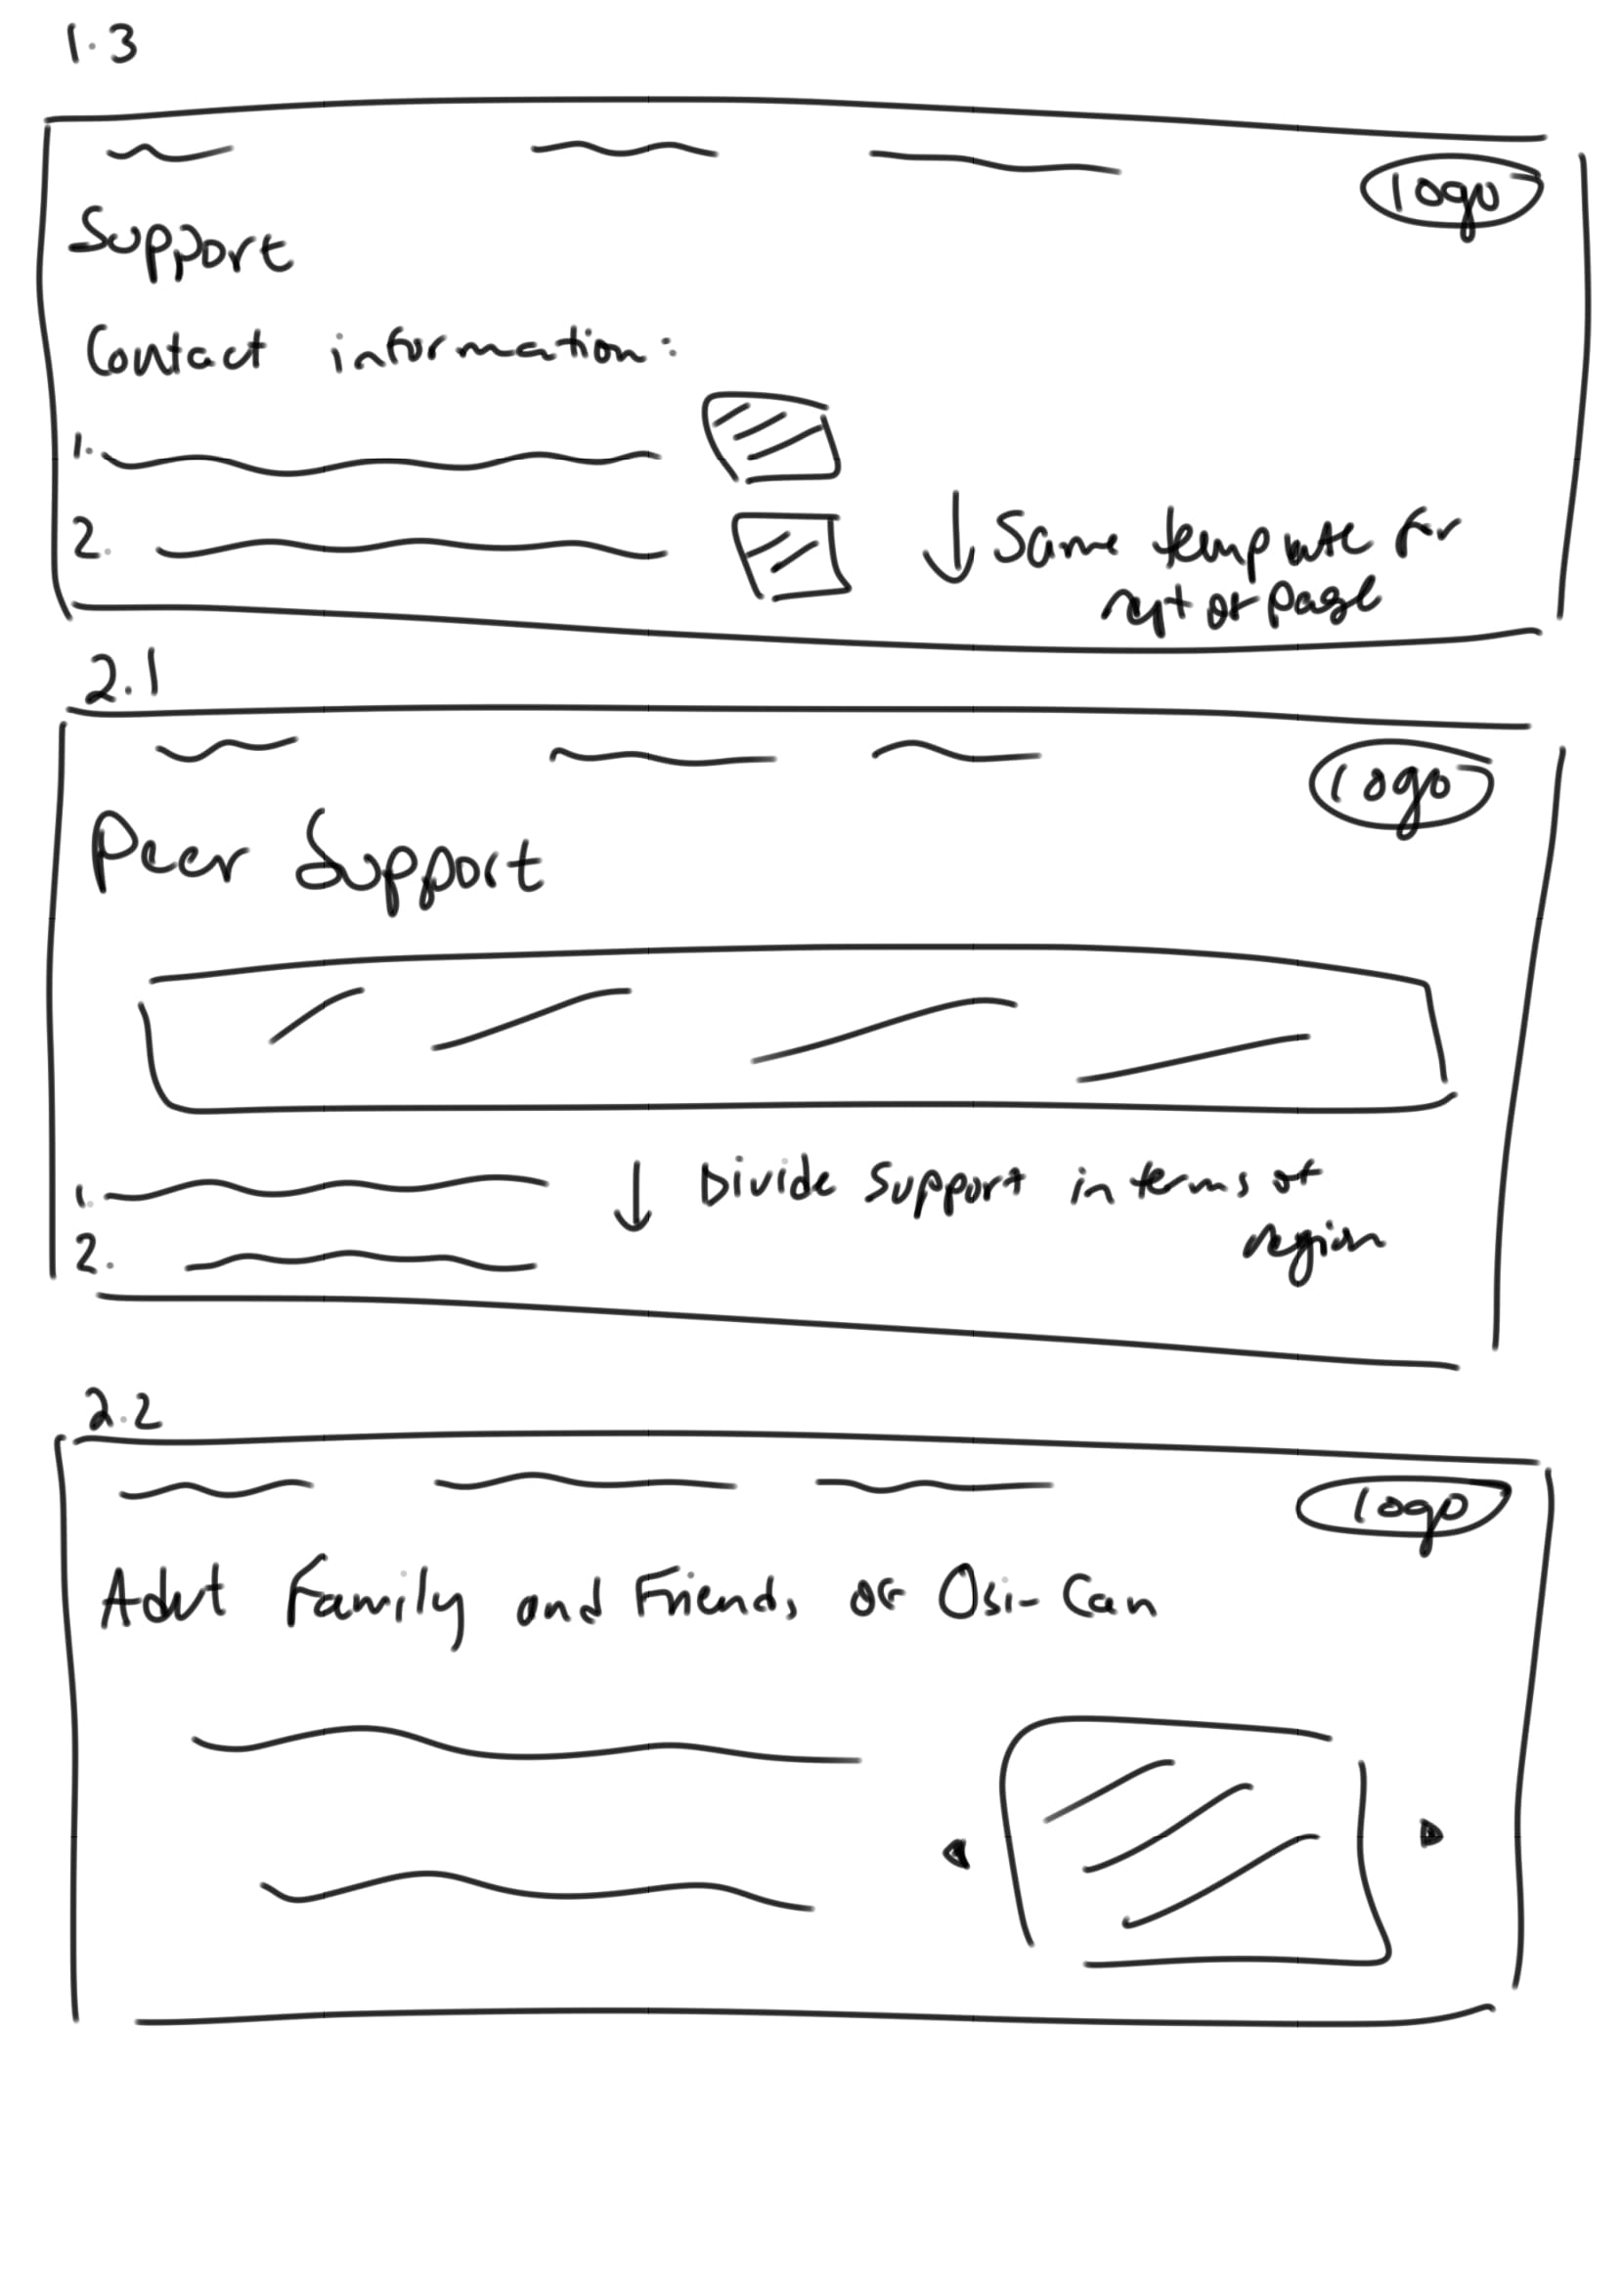 1.3
logo
Support
Contact information:
1.
2.
↓ Same template for
rest of page
2.1
logo
Peer Support
1.
↓ Divide support in terms of
region
2.
2.2
logo
Adult Family and Friends of Osi-Can